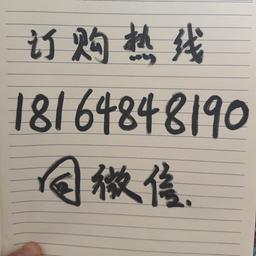 订购热线
18164848190
同微信.